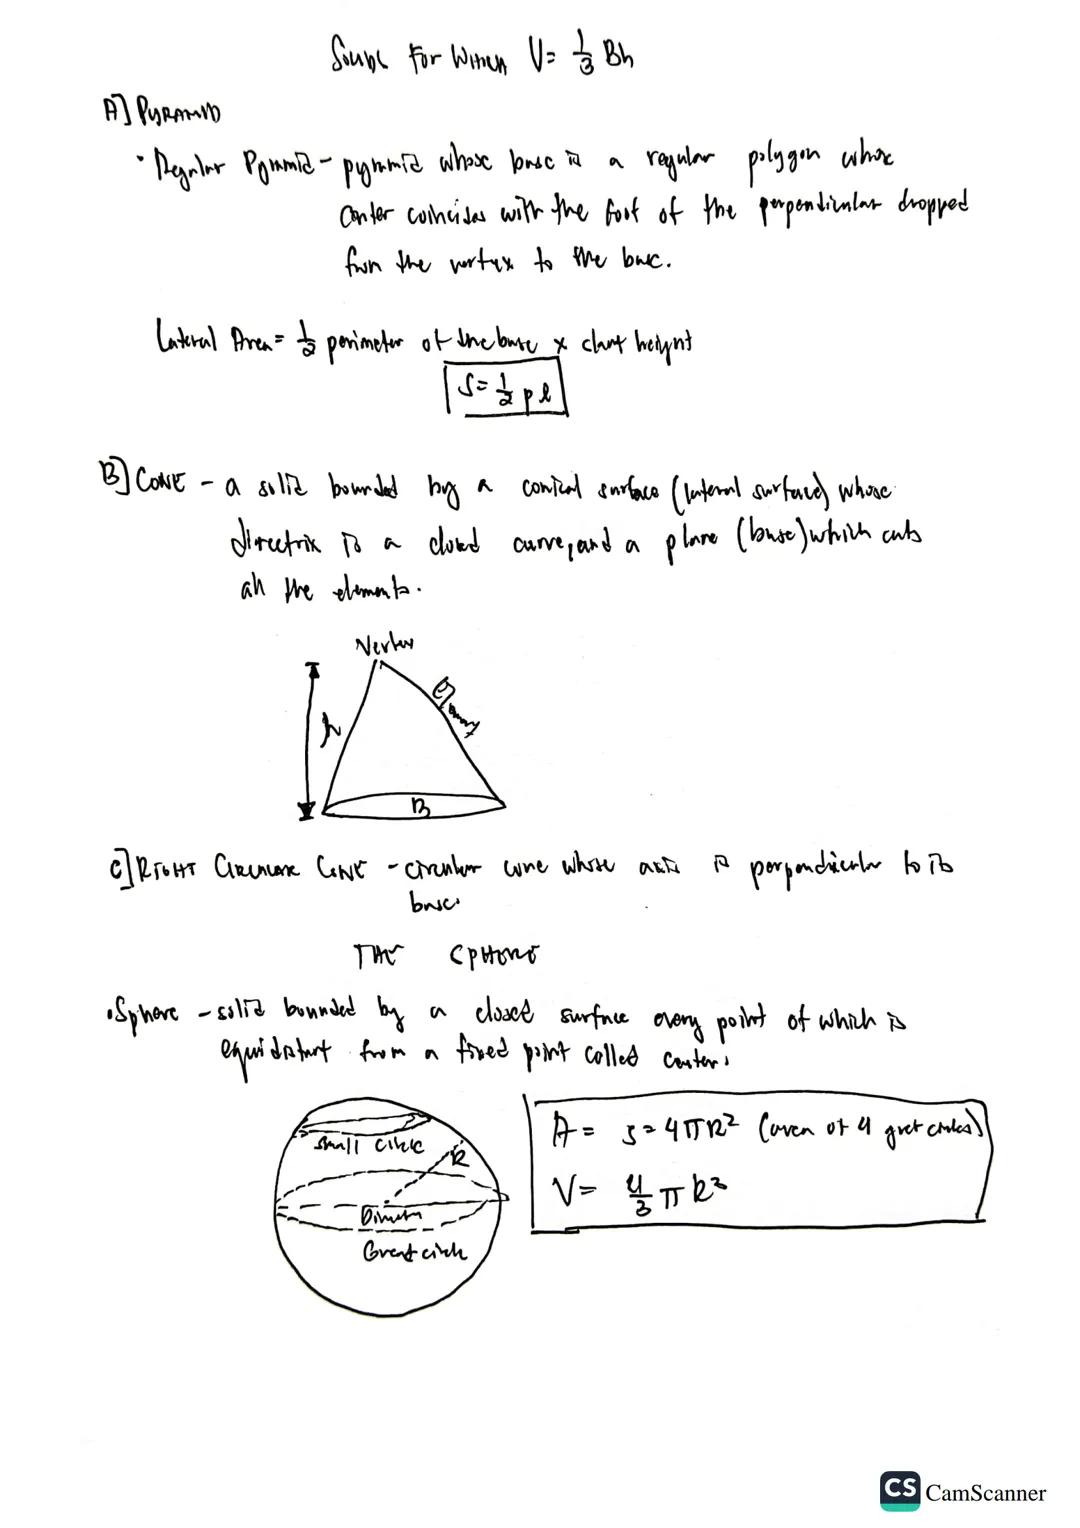 Solids For Which V = 1/3 Bh
A] PYRAMID
• Regular Pyramid - pyramid whose base is a regular polygon whose
center coincides with the foot of the perpendicular dropped
from the vertex to the base.
Lateral Area = 1/2 perimeter of the base x slant height
S = 1/2 pl
B] CONE - a solid bounded by a conical surface (lateral surface) whose
directrix is a closed curve, and a plane (base) which cuts
all the elements.
Vertex
Element
h
B
C] RIGHT CIRCULAR CONE - circular cone whose axis is perpendicular to its
base.
THE SPHERE
• Sphere - solid bounded by a closed surface every point of which is
equidistant from a fixed point called center.
A = S = 4πR² (area of 4 great circles)
V = 4/3 πR³
Small circle
R
Diameter
Great circle
CS CamScanner